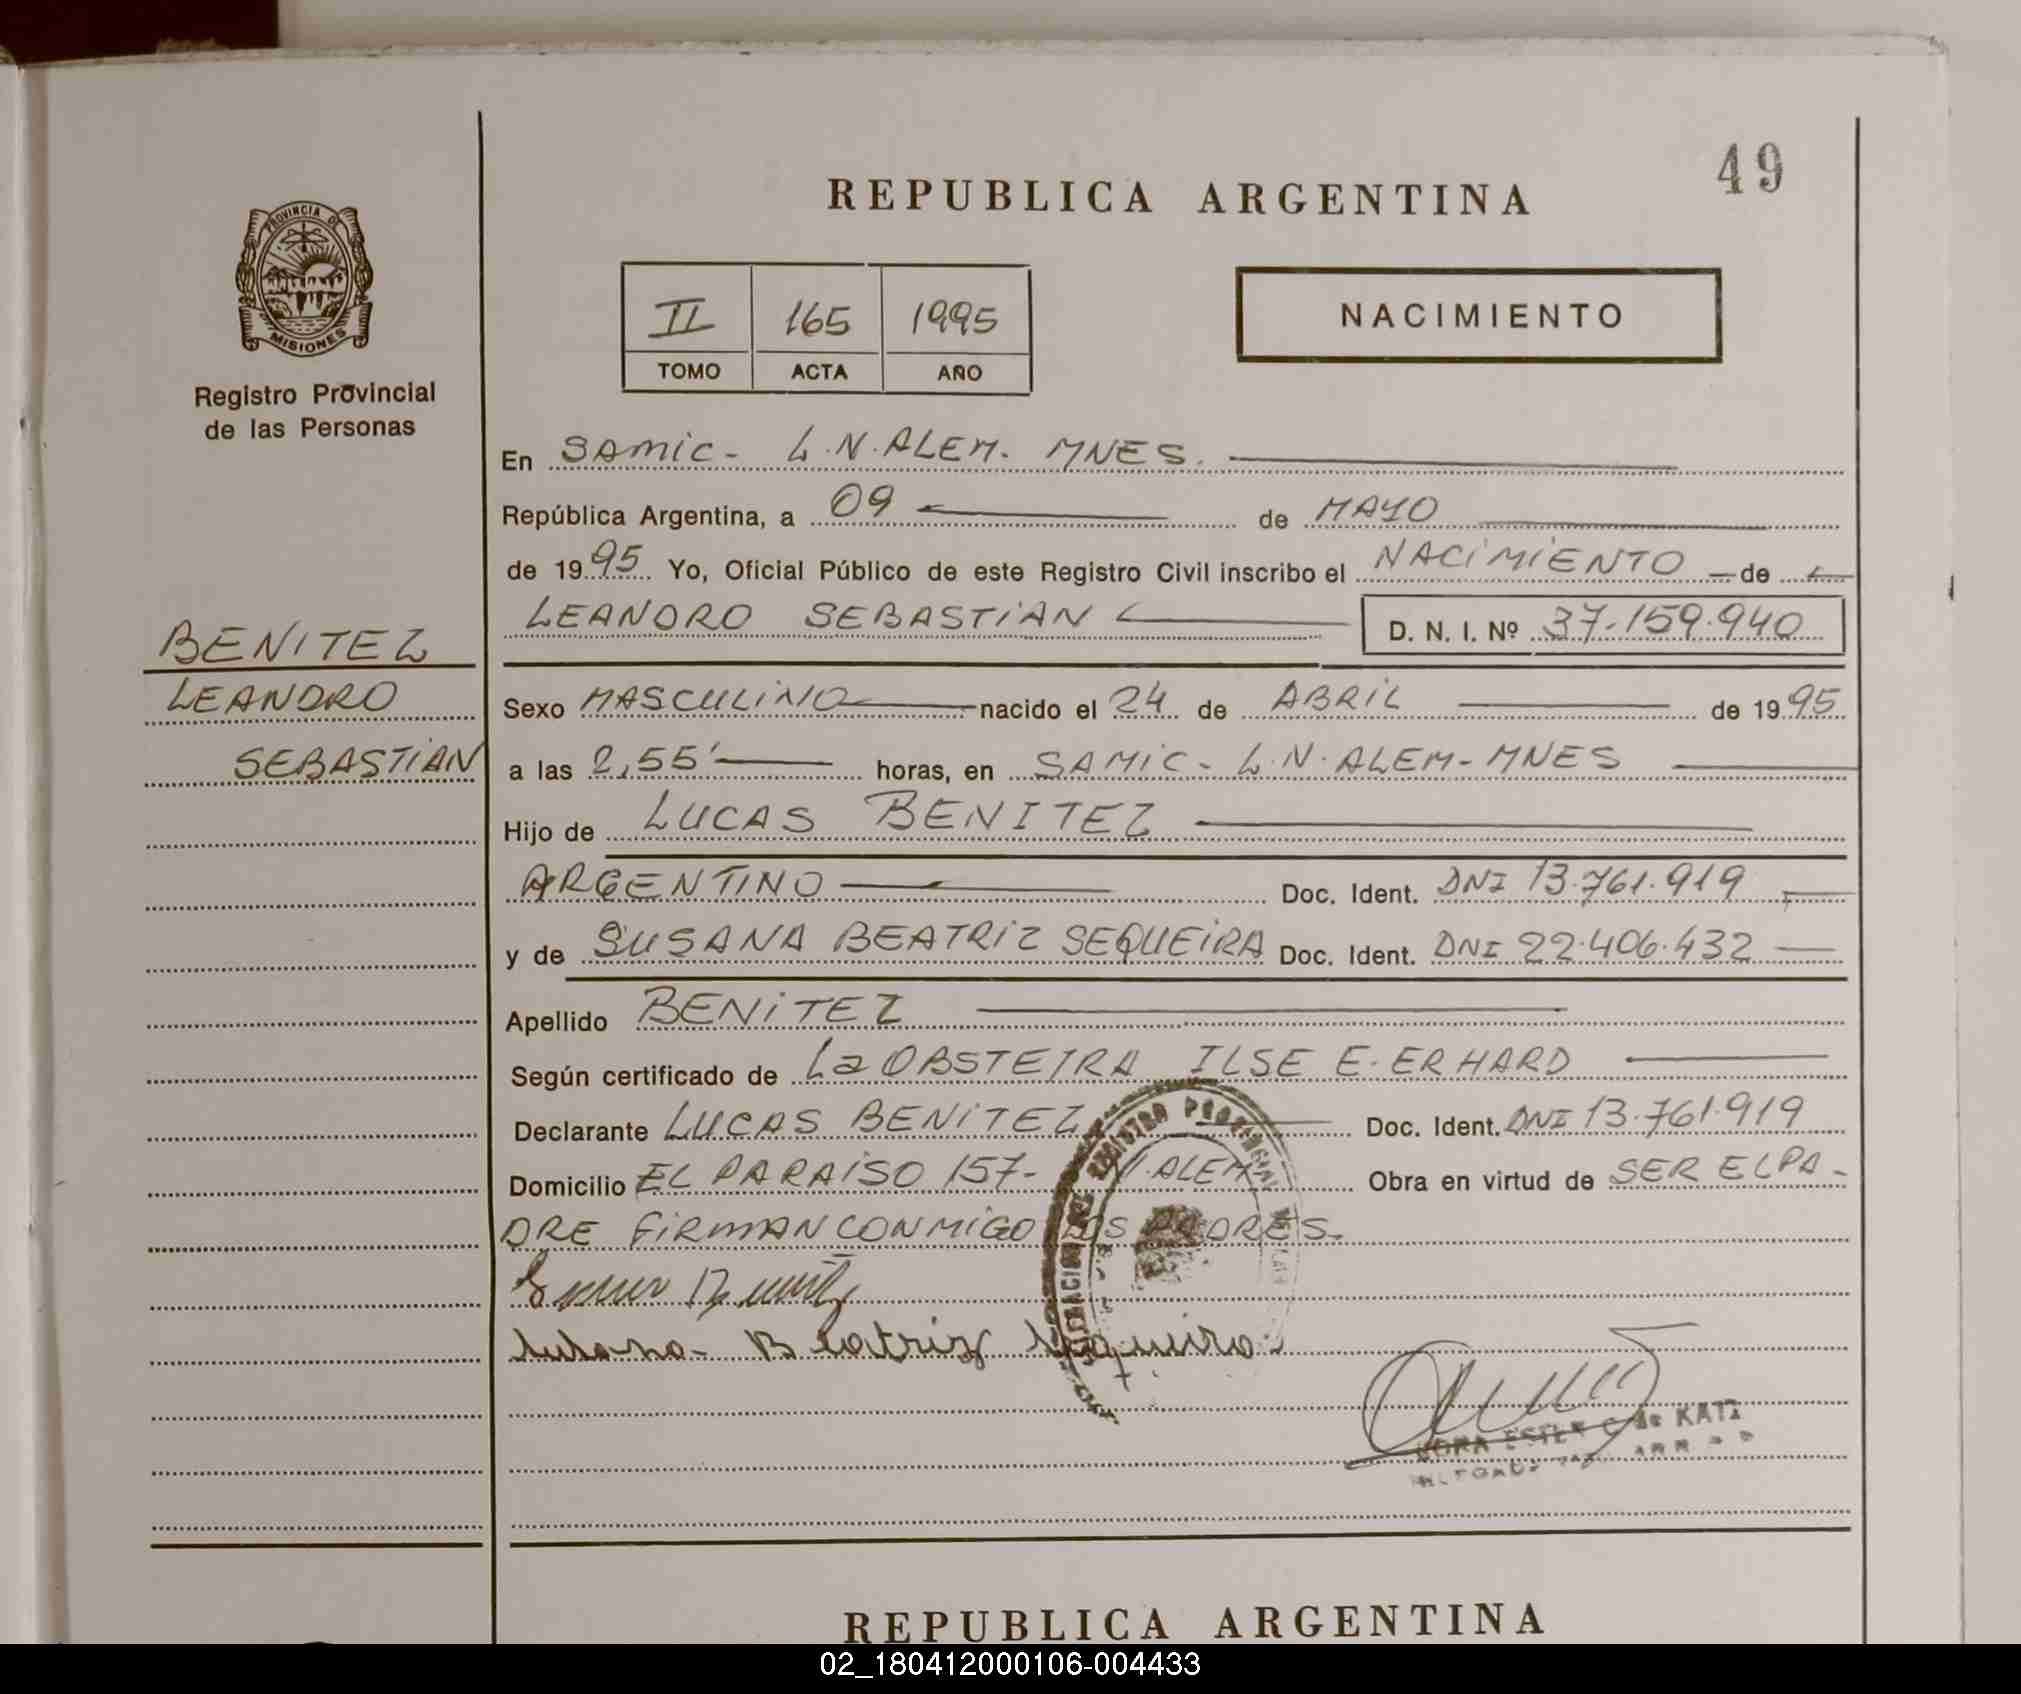 49
REPUBLICA ARGENTINA
PROVINCIA DE
MISIONES
Registro Provincial
de las Personas
II 165 1995
TOMO ACTA AÑO
NACIMIENTO
En SAMIC - L.N. ALEM - MNES.
República Argentina, a 09 de MAYO
de 1995 Yo, Oficial Público de este Registro Civil inscribo el NACIMIENTO de
LEANDRO SEBASTIAN D. N. I. Nº 37.159.940
BENITEZ
LEANDRO
SEBASTIAN
Sexo MASCULINO nacido el 24 de ABRIL de 1995
a las 2,55' horas, en SAMIC - L.N. ALEM - MNES
Hijo de LUCAS BENITEZ
ARGENTINO Doc. Ident. DNI 13.761.919
y de SUSANA BEATRIZ SEQUEIRA Doc. Ident. DNI 22.406.432
Apellido BENITEZ
Según certificado de La OBSTETRA ILSE E. ERHARD
Declarante LUCAS BENITEZ Doc. Ident. DNI 13.761.919
Domicilio EL PARAISO 157 - N. ALEM - Obra en virtud de SER EL PA-
DRE FIRMAN CONMIGO LOS PADRES.
Susana Beatriz Sequeira
ESTER C de KATZ
REPUBLICA ARGENTINA
02_180412000106-004433